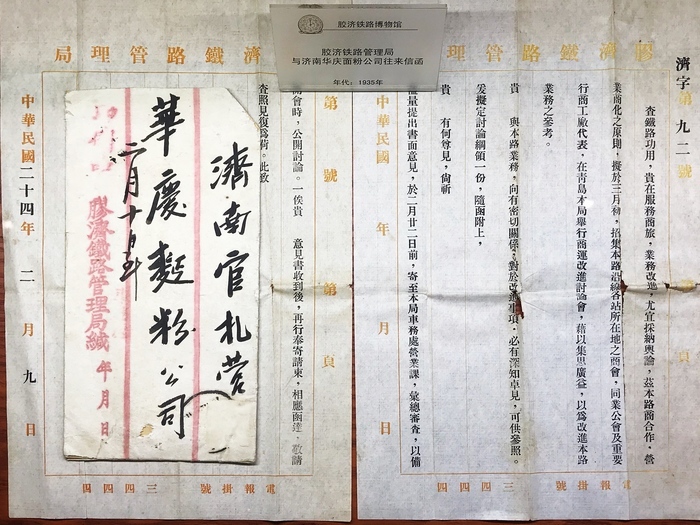 胶济铁路博物馆
胶济铁路管理局
与济南华庆面粉公司往来信函
年代：1935年
膠濟鐵路管理
濟字第九二號
查鐵路功用，貴在服務商旅，業務改進，尤宜採納輿論，茲本路商合作，營
業商化之原則，擬於三月初，招集本路沿線各站所在地之商會，同業公會及重要
行商工廠代表，在青島本局舉行商運改進討論會，藉以集思廣益，以爲改進本路
業務之參考。
貴　與本路業務，向有密切關係，對於改進事項，必有深知卓見，可供參照。
爰擬定討論綱領一份，隨函附上，
貴　有何尊見，尙祈
儘量提出書面意見，於二月廿二日前，寄至本局車務處營業課，彙總審查，以備
中華民國　年　月　日
電報掛號　三四四四
濟鐵路管理局
第　號　第　頁
商會時，公開討論。一俟貴　意見書收到後，再行奉寄請柬，相應函達，敬請
查照見復爲荷。此致
中華民國二十四年二月九日
電報掛號　三四四四
濟南官札營
華慶麵粉公司
二月十
膠濟鐵路管理局緘
年月日